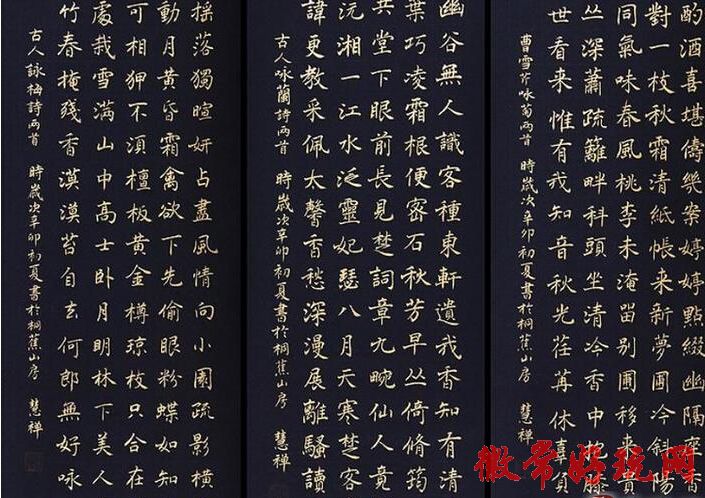 酌酒喜堪儔幾案婷婷點綴幽隔座香
對一枝秋霜清紙帳来新夢圃冷斜陽
同氣味春風桃李未淹畱別圃移来貴
丛深蕭疏籬畔科頭坐清冷香中抱膝
世看来惟有我知音秋光荏苒休辜負
曹雪芹咏菊兩首 時歲次辛卯初夏書於桐蕉山房 慧禅
幽谷無人識客種東軒遺我香知有清
葉巧凌霜根便密石秋芳早丛倚脩筠
共堂下眼前長見楚詞章九畹仙人竟
沅湘一江水泛靈妃瑟八月天寒楚客
諱更教采佩太馨香愁深漫展離騷讀
古人咏蘭詩兩首 時歲次辛卯初夏書於桐蕉山房 慧禅
採落獨暄妍占盡風情向小園疏影橫
動月黄昏霜禽欲下先偷眼粉蝶如知
可相狎不湏檀板黄金樽琼枝只合在
處栽雪满山中高士卧月明林下美人
竹春掩殘香漠漠苔自去何郎無好咏
古人詠梅詩兩首 時歲次辛卯初夏書於桐蕉山房 慧禅
徽常好玩网